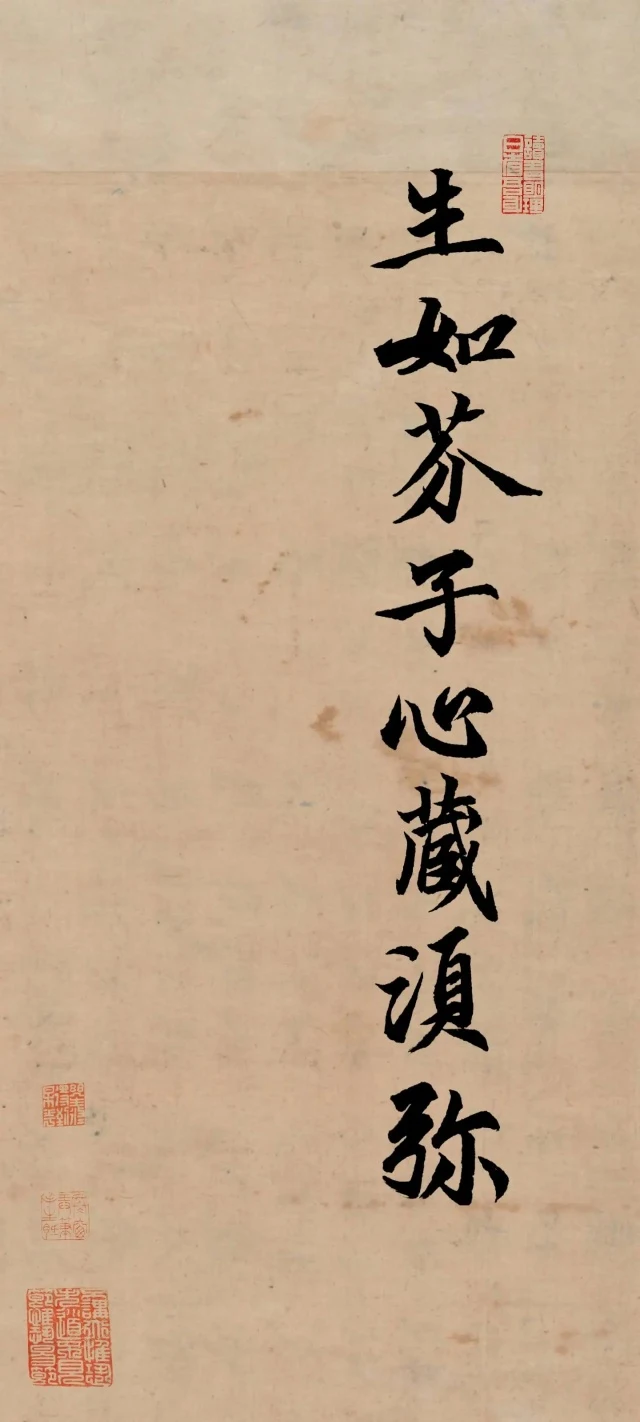 生如芥子心藏须弥